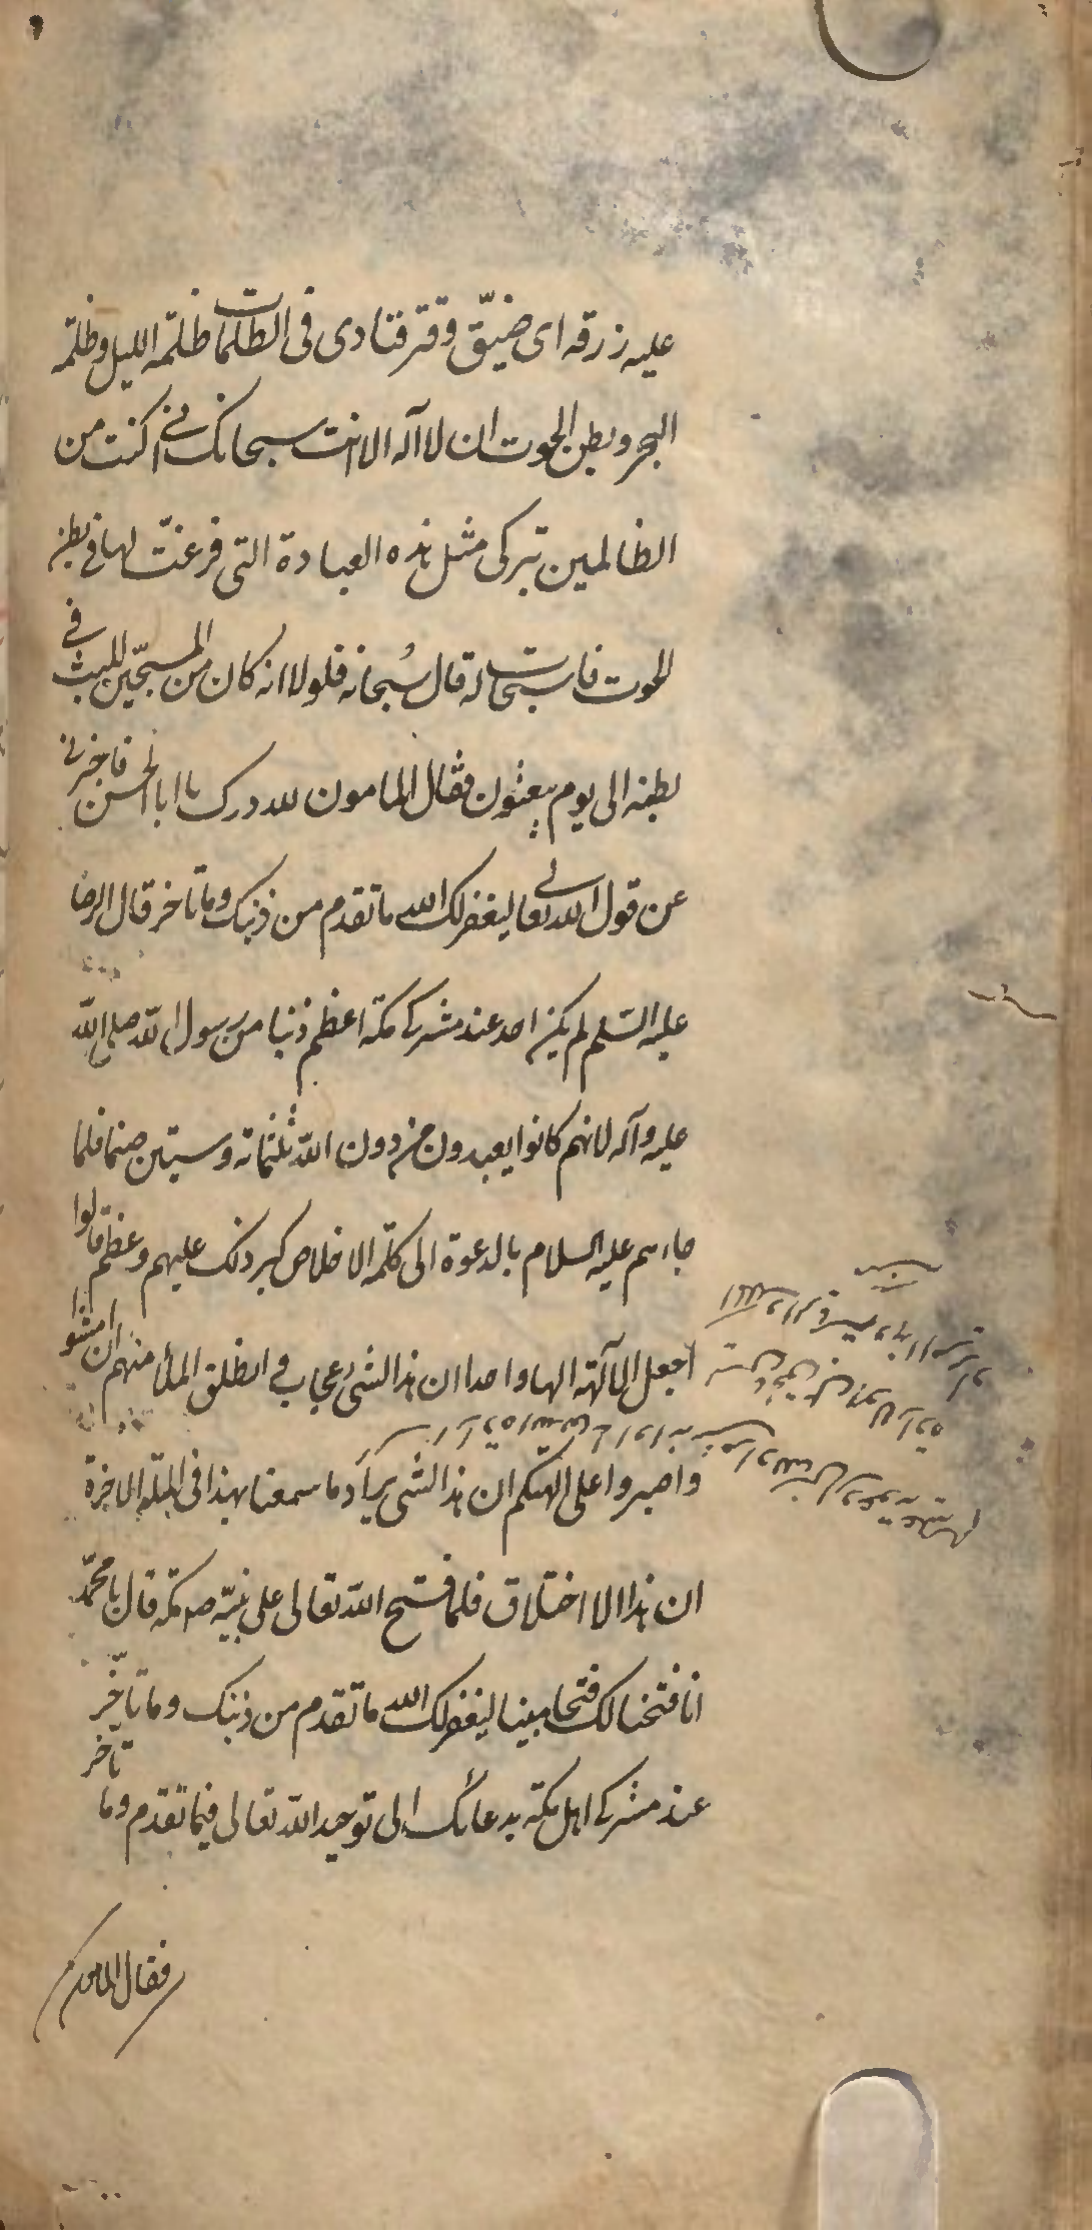 عليه رزقه اى ضيّق وقتر فنادى فى الظلمات ظلمة الليل وظلمة
البحر وبطن الحوت ان لا اله الا انت سبحانك انى كنت من
الظالمين بتركى مثل هذه العبادة التى فرغتّ لها فى بطن
الحوت فاستجاب له قال سُبحانه فلولا انه كان من المسبّحين للبث فى
بطنه الى يوم يبعثون فقال المامون لله درك يا ابا الحسن فاخبرنى
عن قول الله تعالى ليغفر لك الله ما تقدم من ذنبك وما تاخر قال الرضا
عليه السّلم لم يكن احد عند مشركى مكة اعظم ذنبا من رسول الله صلى الله
عليه وآله لانهم كانوا يعبدون من دون الله ثلثمائة وستين صنما فلما
جاءهم عليه السلام بالدعوة الى كلمة الاخلاص كبر ذلك عليهم وعظم قالوا
اجعل الآلهة الها واحدا ان هذا لشئ عجاب وانطلق الملأ منهم ان امشوا
واصبروا على الهتكم ان هذا لشئ يراد ما سمعنا بهذا فى الملة الاخرة
ان هذا الا اختلاق فلما فتح الله تعالى على نبيّه ص مكة قال يا محمّد
انا فتحنا لك فتحا مبينا ليغفر لك الله ما تقدم من ذنبك وما تاخّر
عند مشركى اهل مكة بدعائك الى توحيد الله تعالى فيما تقدم وما تاخر
فقال المامون